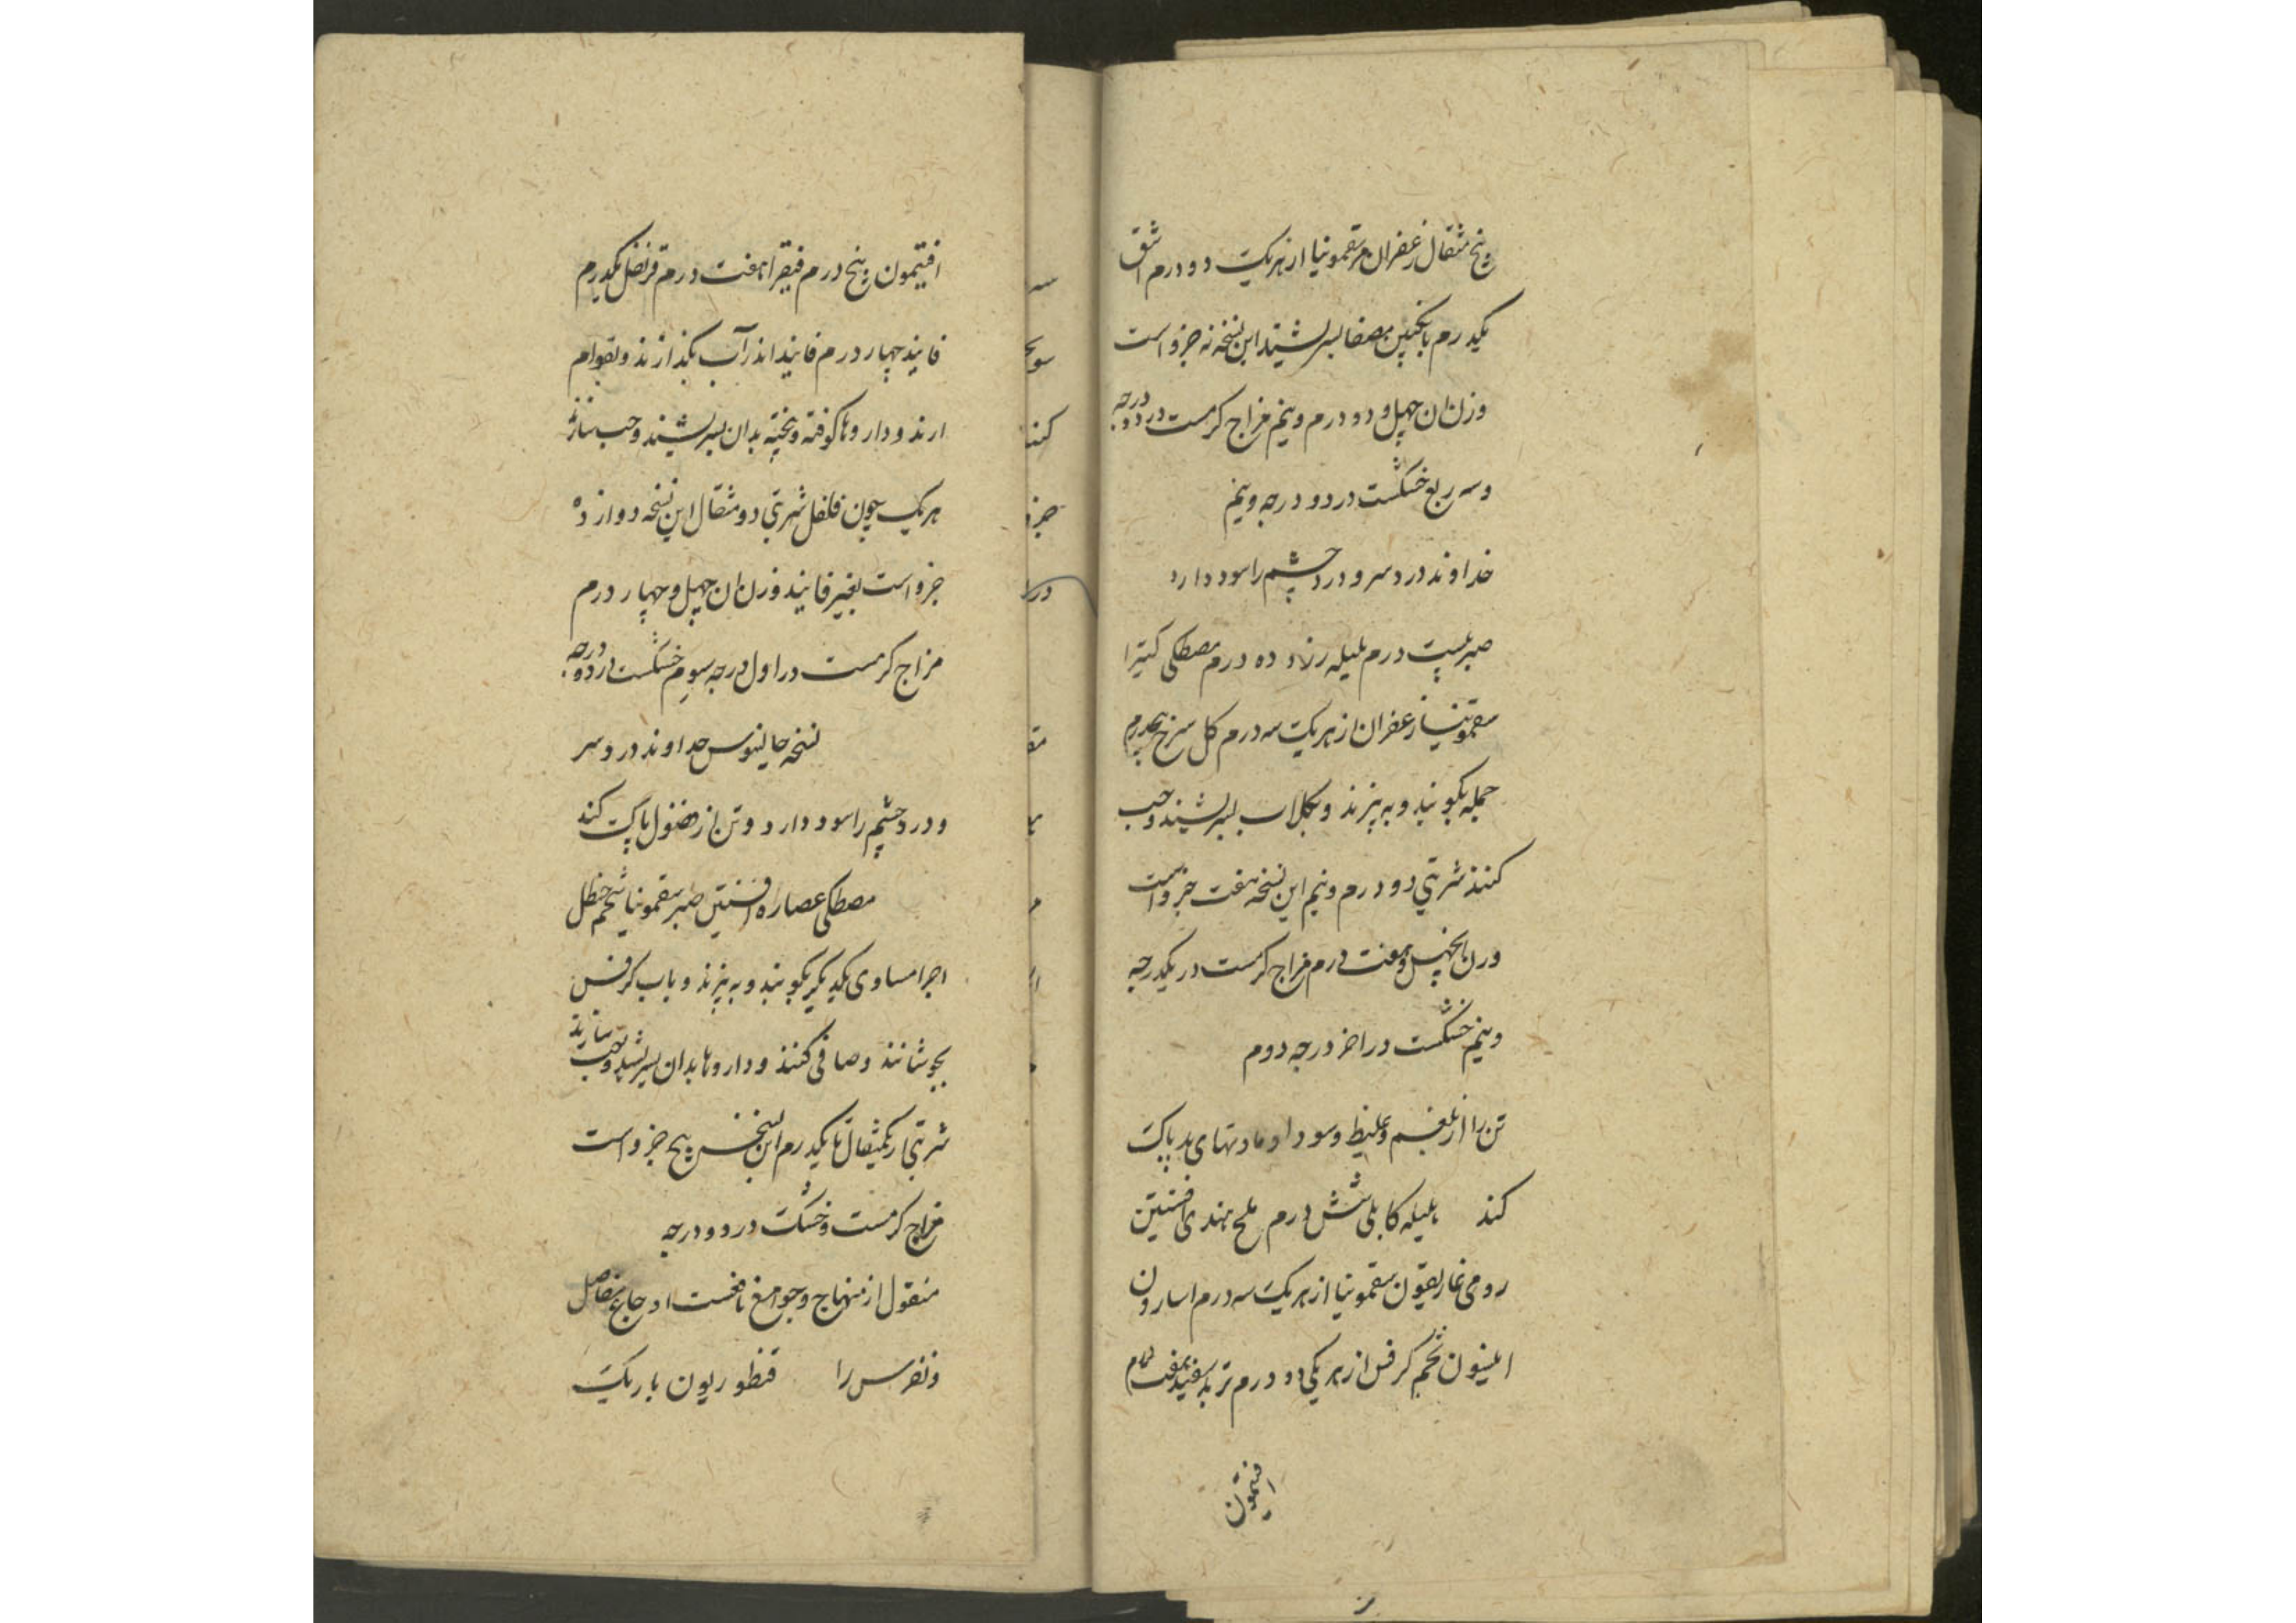 پنج مثقال زعفران سقمونیا از هریک دو درم اشق
یکدرم بانگبین مصفا بسرشیند این نسخه نه جزو است
وزن ان چهل و دو درم و نیم مزاج گرمست در دو درجه
وسه ربع خشکست در دو درجه و نیم
خداوند درد سر و درد چشم را سود دارد
صبر بیست درم هلیله زرد ده درم مصطکی کتیرا
سقمونیا زعفران از هریک سه درم کل سرخ پنجدرم
جمله بکوبند و به بیزند و بکلاب بسرشیند و حب
کنند شربتی دو درم و نیم این نسخه هفت جزو است
وزن چهل و هفت درم مزاج گرمست در یکدرجه
و نیم خشکست در اخر درجه دوم
تن را از بلغم و غلیظ و سودا و مادتهای بد پاک
کند هلیله کابلی شش درم ملح هندی افسنتین
رومی غاریقون سقمونیا از هریک سه درم اسارون
انیسون تخم کرفس از هریکی دو درم تربد سفید هفت درم
افتیمون
افتیمون پنج درم فیقرا هفت درم قرنفل یکدرم
فانیذ چهار درم فانیذ اندر آب بکذازند و بقوام
ارند و داروها کوفته و بیخته بدان بسرشیند و حب سازند
هریک چون فلفل شربتی دو مثقال این نسخه دوازده
جزو است بغیر فانیذ وزن ان چهل و چهار درم
مزاج گرمست در اول درجه سوم خشکست در دو درجه
نسخه جالینوس خداوند درد سر
و درد چشم را سود دارد و تن از فضول پاک کند
مصطکی عصاره افسنتین صبر سقمونیا شحم حنظل
اجزا مساوی یکدیکر بکوبند و به بیزند و باب کرفس
بجوشانند و صافی کنند و داروها بدان بسرشیند و حب سازند
شربتی از یکمثقال تا یکدرم این نسخه پنج جزو است
مزاج گرمست و خشک در دو درجه
منقول از منهاج و جوامع نافخست اوجاع مفاصل
و نقرس را قنطوریون باریک